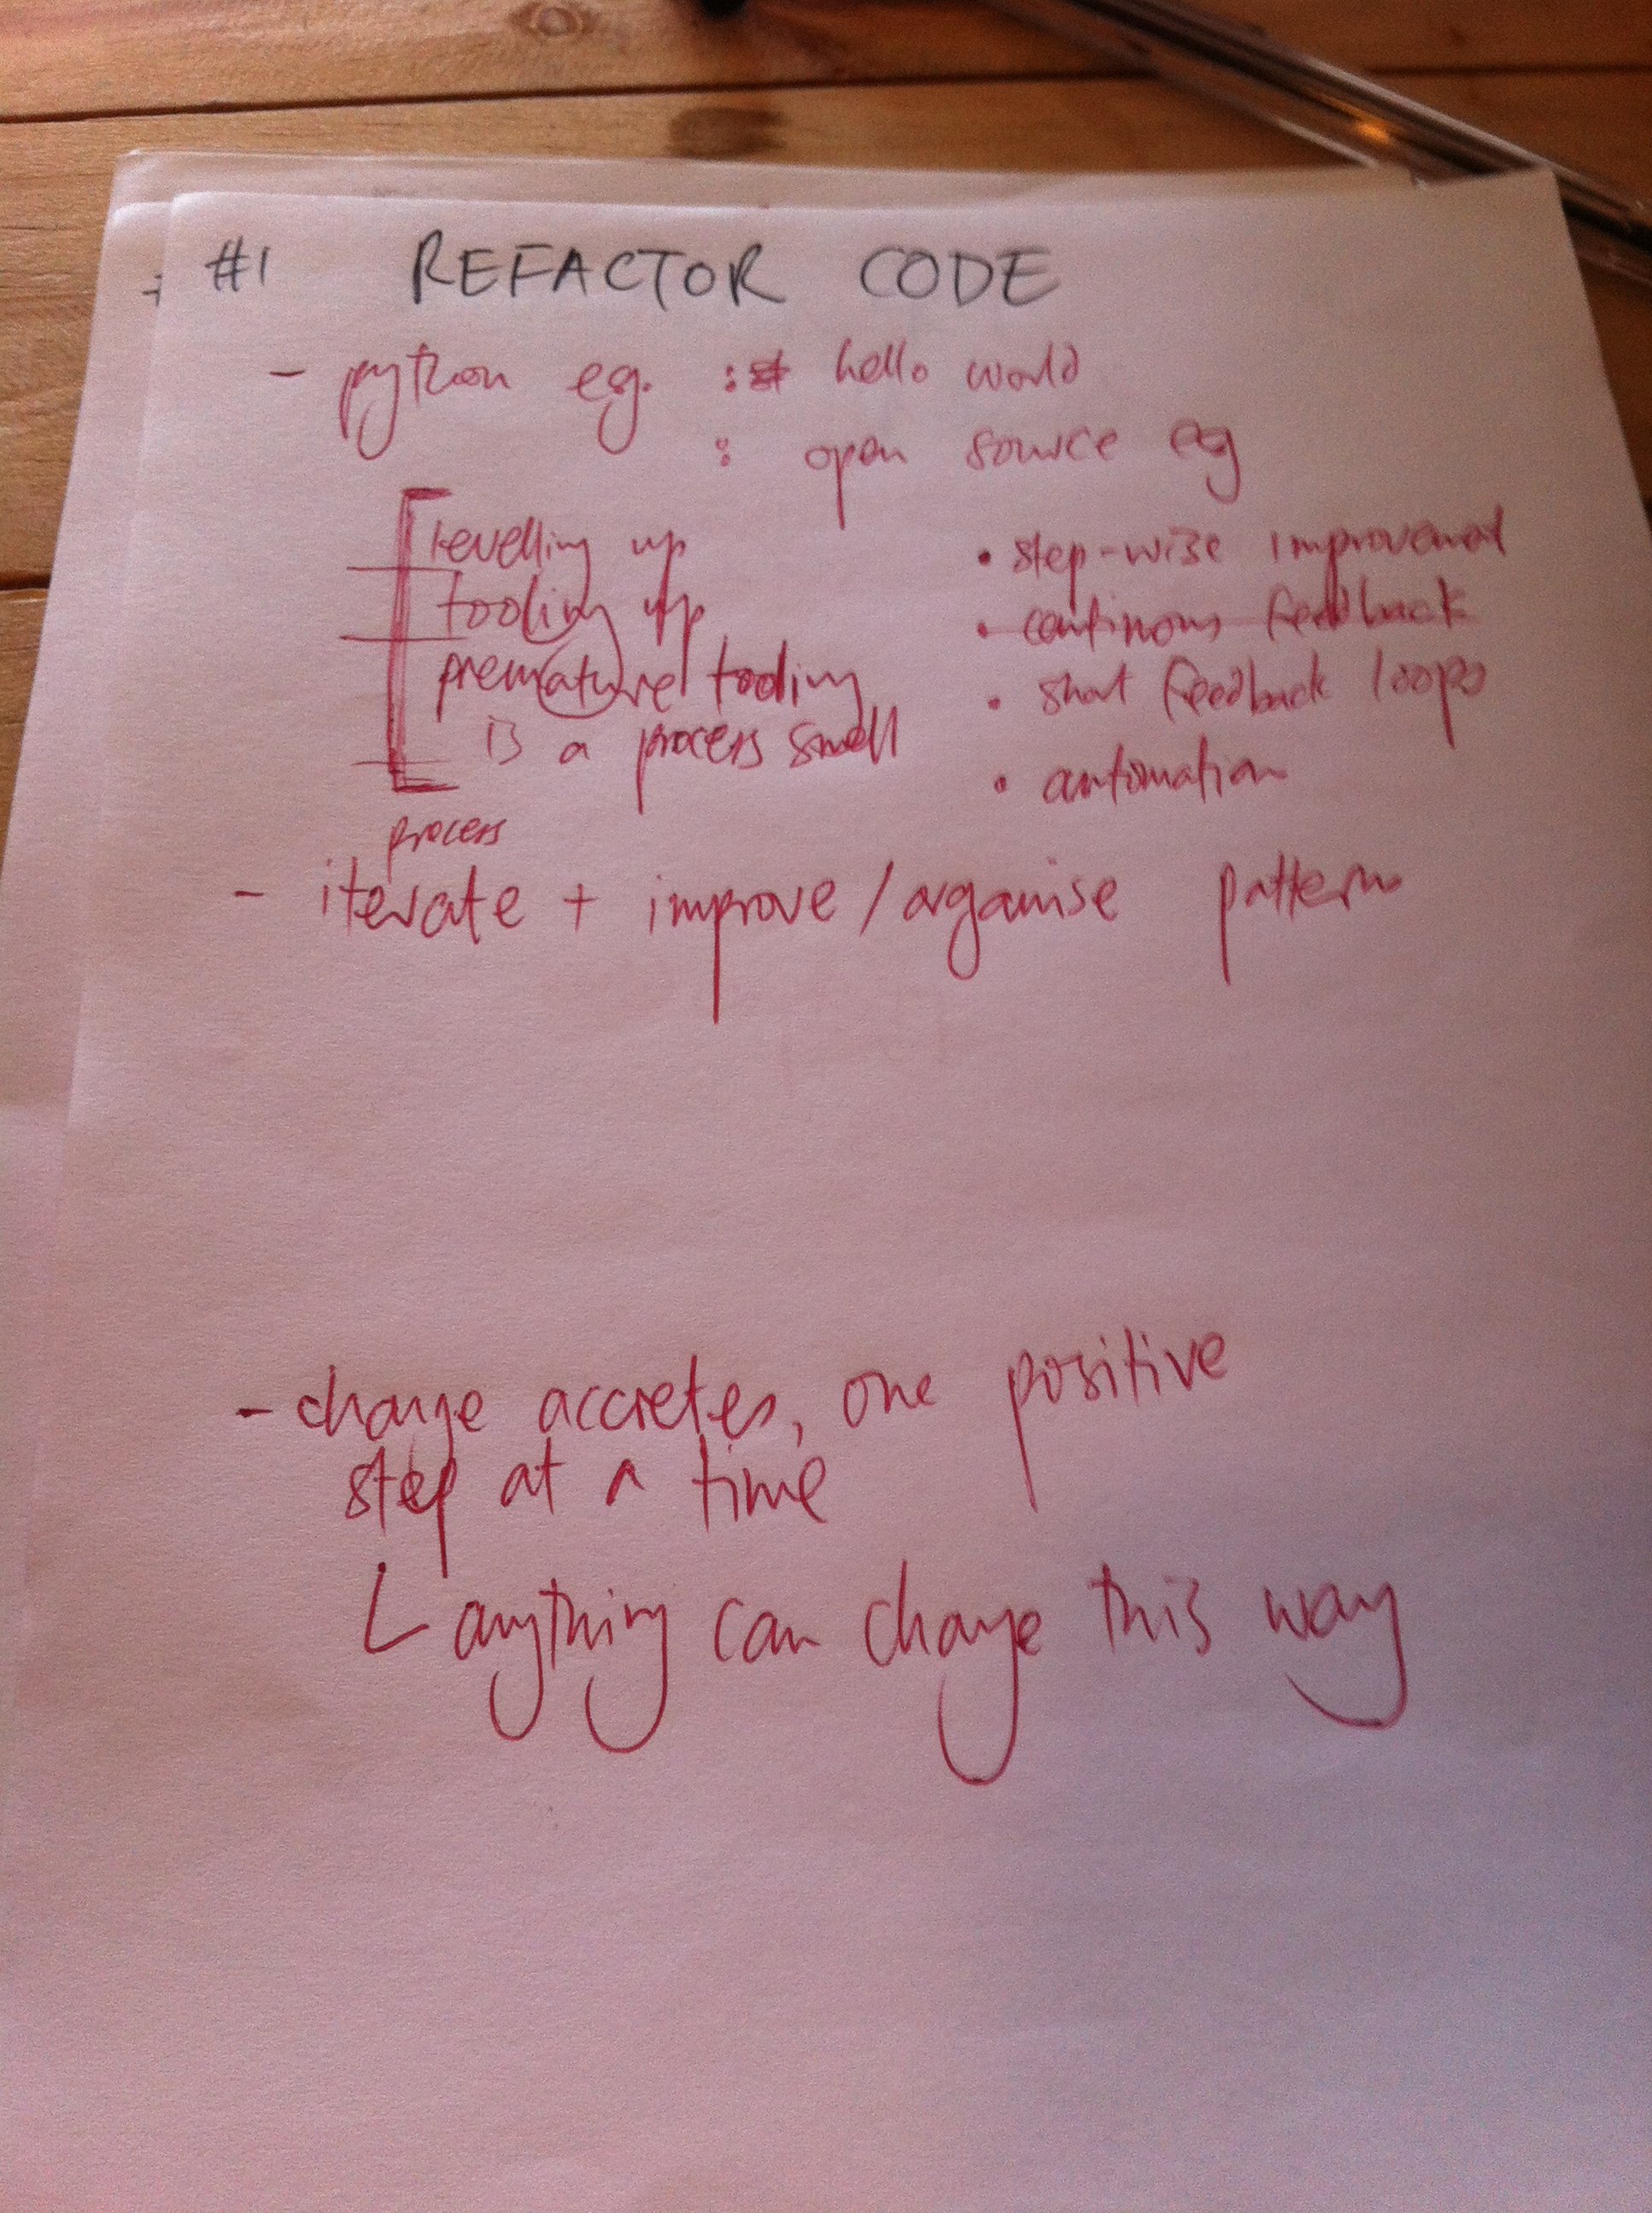 #1 REFACTOR CODE
- python eg. : hello world
: open source eg
levelling up
tooling up
premature tooling
is a process smell
process
• step-wise improvement
• continous feedback
• short feedback loops
• automation
- iterate + improve / organise pattern
- change accretes, one positive
step at a time
L anything can change this way